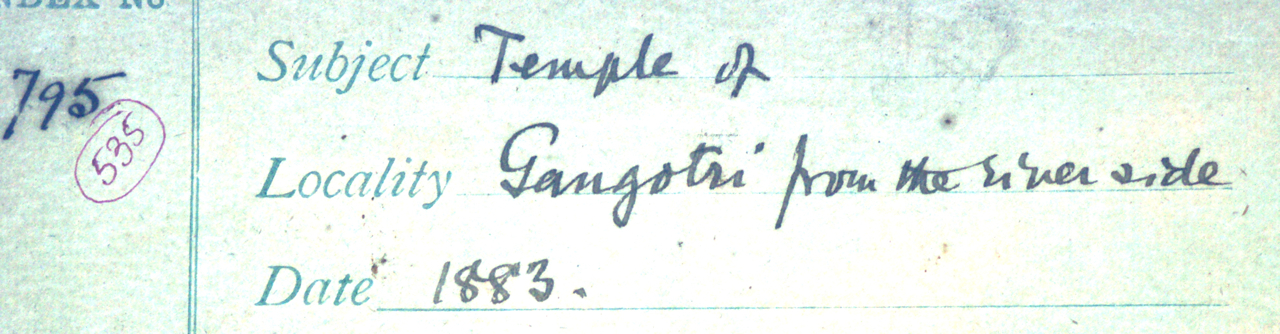 INDEX No
795
535
Subject Temple of
Locality Gangotri from the river side
Date 1883.